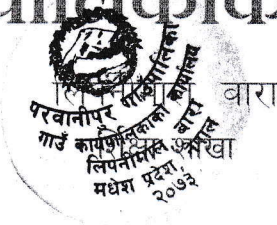 परवानीपुर गाउँपालिका
गाउँ कार्यपालिकाको कार्यालय
लिपनीमाल बारा
मधेश प्रदेश, नेपाल
२०७३
वारा
शिक्षा शाखा